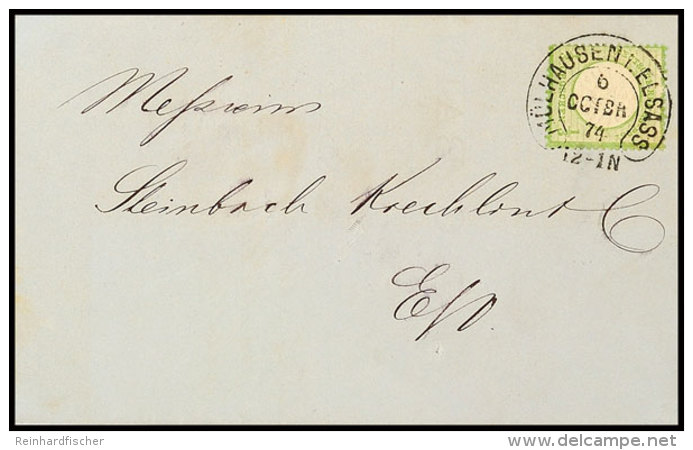 MÜLHAUSEN I. ELSASS
6
OCTBR
74
12-1N
Messieurs
Steinbach Koechlin & C
E/V.
Reinhardfischer
delcampe.net